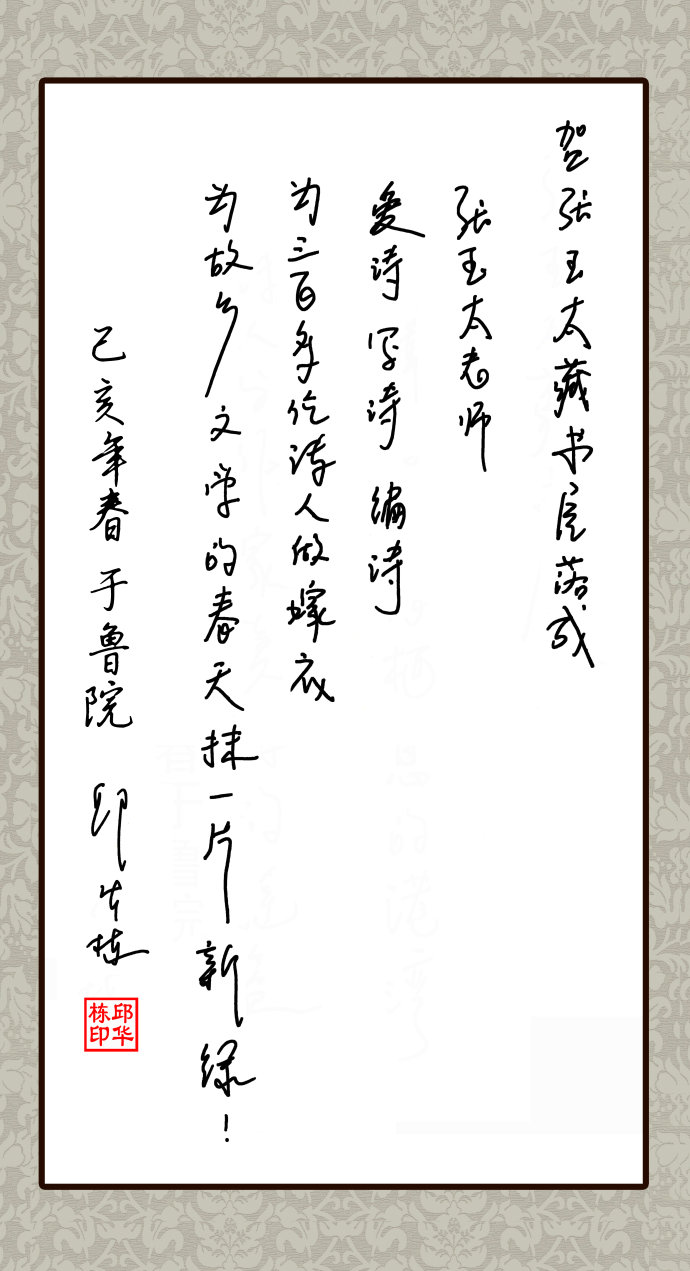 贺张玉太藏书居落成
张玉太老师
爱诗 写诗 编诗
为三百多位诗人做嫁衣
为故乡文学的春天抹一片新绿!
己亥年春于鲁院 邱华栋
邱华栋印